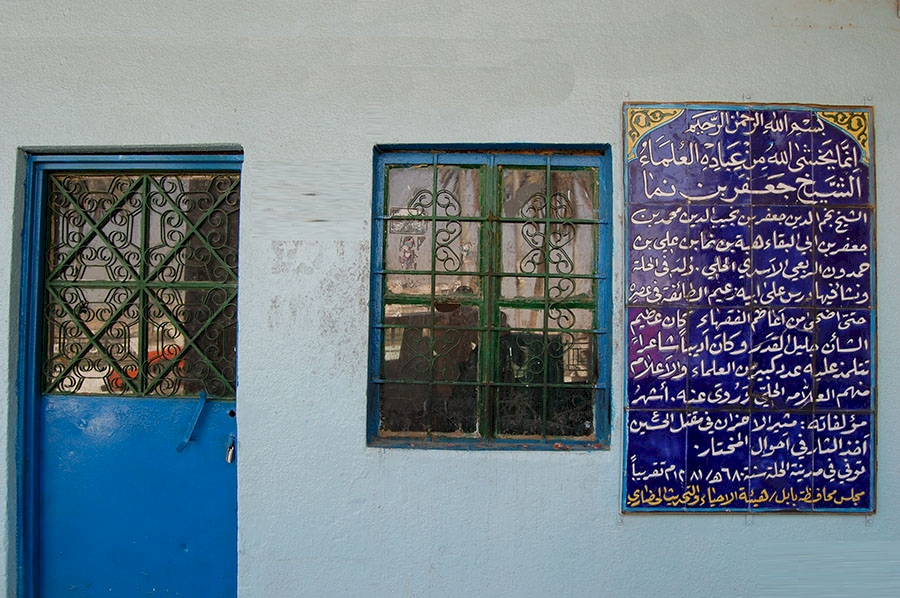 بسم الله الرحمن الرحيم
إنما يخشى الله من عباده العلماء
الشيخ جعفر بن نما
الشيخ نجم الدين جعفر بن نجيب الدين محمد بن
جعفر بن ابي البقاء هبة بن نما بن علي بن
حمدون الربعي الاسدي الحلي . ولد في الحلة
ونشأ فيها ودرس على ابيه زعيم الطائفة في عصره
حتى اضحى من أعاظم الفقهاء كان عظيم
الشأن جليل القدر وكان أديباً شاعراً
تتلمذ عليه عدد كبير من العلماء والاعلام
منهم العلامه الحلي وروى عنه. أشهر
مؤلفاته: مثير الاحزان في مقتل الحسين
أخذ الثار في أحوال المختار.
توفي في مدينة الحلة سنة ٦٨٠هـ/١٢٨١م تقريباً
مجلس محافظة بابل/هيئة الاحياء والتحديث الحضاري